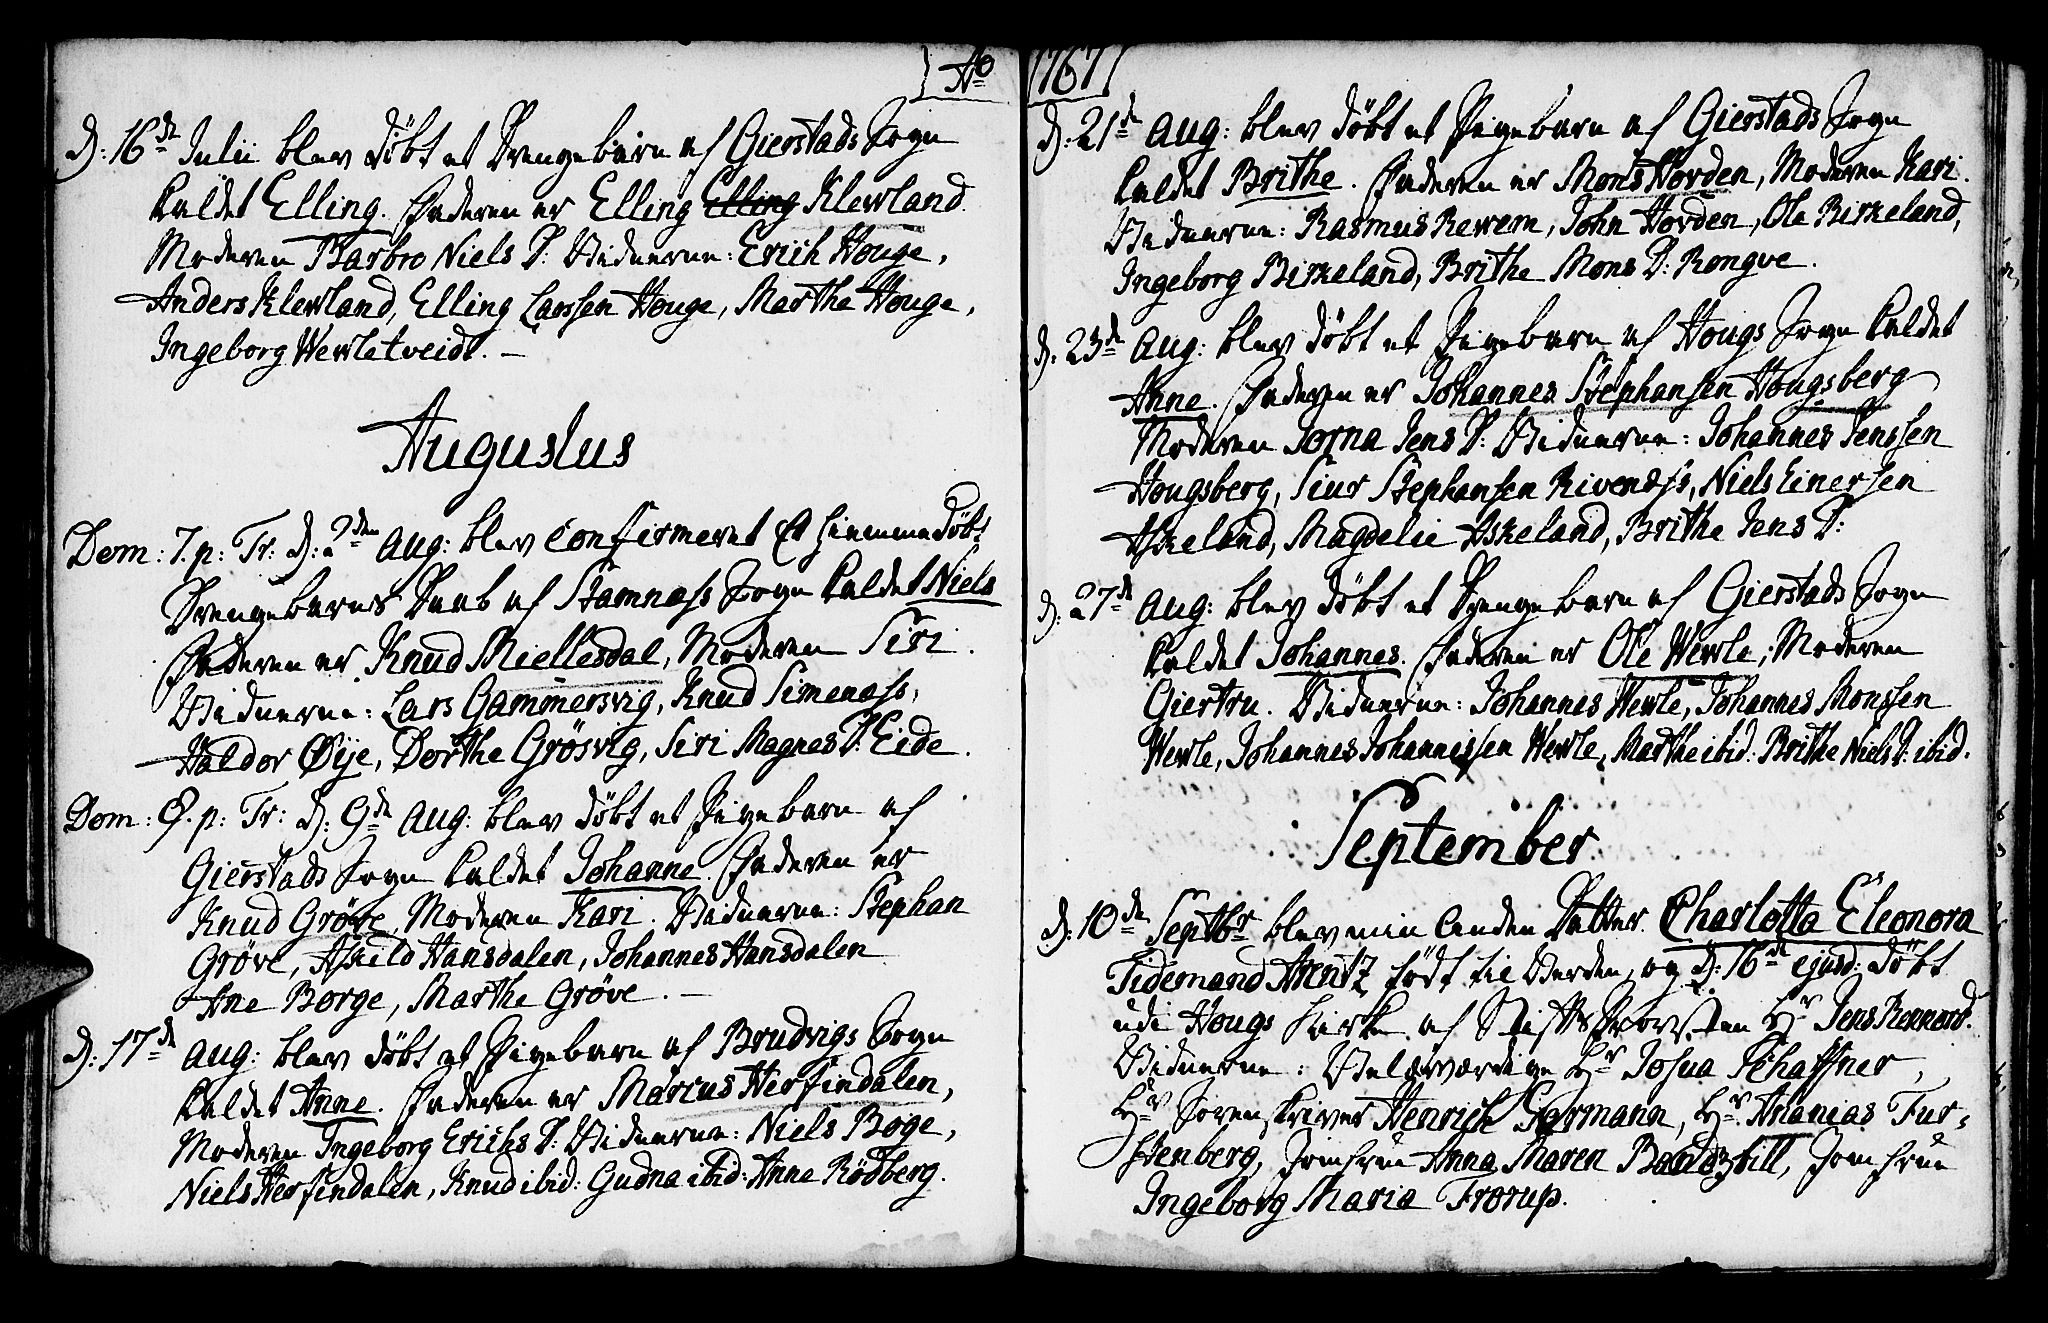 Ao
d: 16de Julii blev döbt et Drengebarn af Gierstads Sogn
kaldet Elling. Faderen er Elling Elling Klewland.
Moderen Barbro Niels D: Vidnerne: Erich Houge,
Anders Klewland, Elling Larssen Houge, Marthe Houge,
Ingeborg Werletveidt. –
Augustus
Dom: 7. p: Tr: d: 2den Aug: blev confirmeret Et hiemmedöbt
Drengebarns Daab af Stamnæss Sogn kaldet Niels
Faderen er Knud Miellesdal, Moderen Siri.
Vidnerne: Lars Gammersvig, Knud Simenæss,
Haldor Øije, Dorthe Grösvig, Siri Magnes D: Eide.
Dom: 8. p: Tr: d: 9de Aug: blev döbt et Pigebarn af
Gierstads Sogn kaldet Johanne. Faderen er
Knud Gröve, Moderen Kari. Vidnerne: Stephan
Gröve, Askild Hansdalen, Johannes Hansdalen
Ane Borge, Marthe Gröve. –
d: 17de Aug: blev döbt et Pigebarn af Brudvigs Sogn
kaldet Anne. Faderen er Marcus Herfindalen,
Moderen Ingeborg Erichs D: Vidnerne: Niels Boge,
Niels Herfindalen, Knud ibid: Gudna ibid: Anne Rödberg.
1767
d: 21de Aug: blev döbt et Pigebarn af Gierstads Sogn
kaldet Brithe. Faderen er Mons Horden, Moderen Kari.
Vidnerne: Rasmus Rewem, John Horden, Ole Birkeland,
Ingeborg Birkeland, Brithe Mons D: Rongve.
d: 23de Aug: blev döbt et Pigebarn af Hougs Sogn kaldet
Anne. Faderen er Johannes Stephansen Hougsberg
Moderen Jorna Jens D: Vidnerne: Johannes Jenssen
Hougsberg, Siur Stephansen Rivenæss, Niels Einersen
Askeland, Magdelie Askeland, Brithe Jens D:
d: 27de Aug: blev döbt et Drengebarn af Gierstads Sogn
kaldet Johannes. Faderen er Ole Werle, Moderen
Giertru. Vidnerne: Johannes Werle, Johannes Monssen
Werle, Johannes Johannessen Werle, Marthe ibid: Brithe Niels D: ibid.
September
d: 10de Septbr blev min Anden Datter Charlotta Eleonora
Tidemand Arentz födt til Verden, og d: 16de ejusd: döbt
udi Hougs Kirke af Stifts Provsten Hr Jens Rennord.
Vidnerne: Velærværdige Hr Josua Schaffner,
Hr Sorenskriver Henrich Garmann, Hr Ananias Fur-
stenberg, Jomfrue Anna Maren Jomfrue
Ingeborg Maria Trorup.